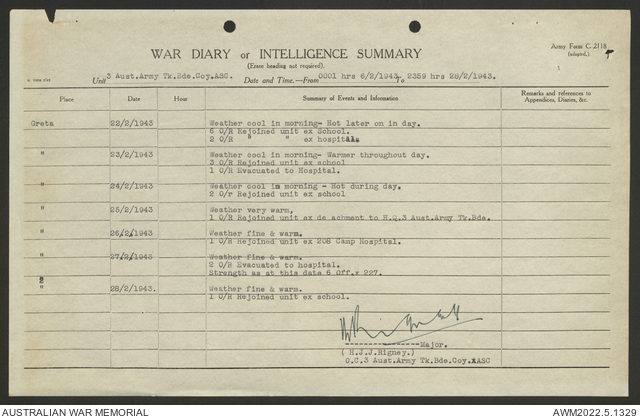 Army Form C.2118
(adapted.)
WAR DIARY or INTELLIGENCE SUMMARY
(Erase heading not required).
Unit 3 Aust.Army Tk.Bde.Coy.ASC. Date and Time.—From 0001 hrs 6/2/1943 To 2359 hrs 28/2/1943.
Place Date Hour Summary of Events and Information Remarks and references to Appendices, Diaries, &c.
Greta 22/2/1943 Weather cool in morning- Hot later on in day.
6 O/R Rejoined unit ex School.
2 O/R " " ex hospital.
" 23/2/1943 Weather cool in morning- Warmer throughout day.
3 O/R Rejoined unit ex school
1 O/R Evacuated to Hospital.
" 24/2/1943 Weather cool in morning - Hot during day.
2 O/r Rejoined unit ex school
" 25/2/1943 Weather very warm,
1 O/R Rejoined unit ex de achment to H.Q.3 Aust.Army Tk.Bde.
" 26/2/1943 Weather fine & warm.
1 O/R Rejoined unit ex 208 Camp Hospital.
" 27/2/1943 Weather fine & warm.
2 O/R Evacuated to hospital.
Strength as at this date 6 Off. 227.
" 28/2/1943. Weather fine & warm.
1 O/R Rejoined unit ex school.
-------------------Major.
( H.J.J.Rigney.)
O.C.3 Aust.Army Tk.Bde.Coy.AASC
AUSTRALIAN WAR MEMORIAL AWM2022.5.1329